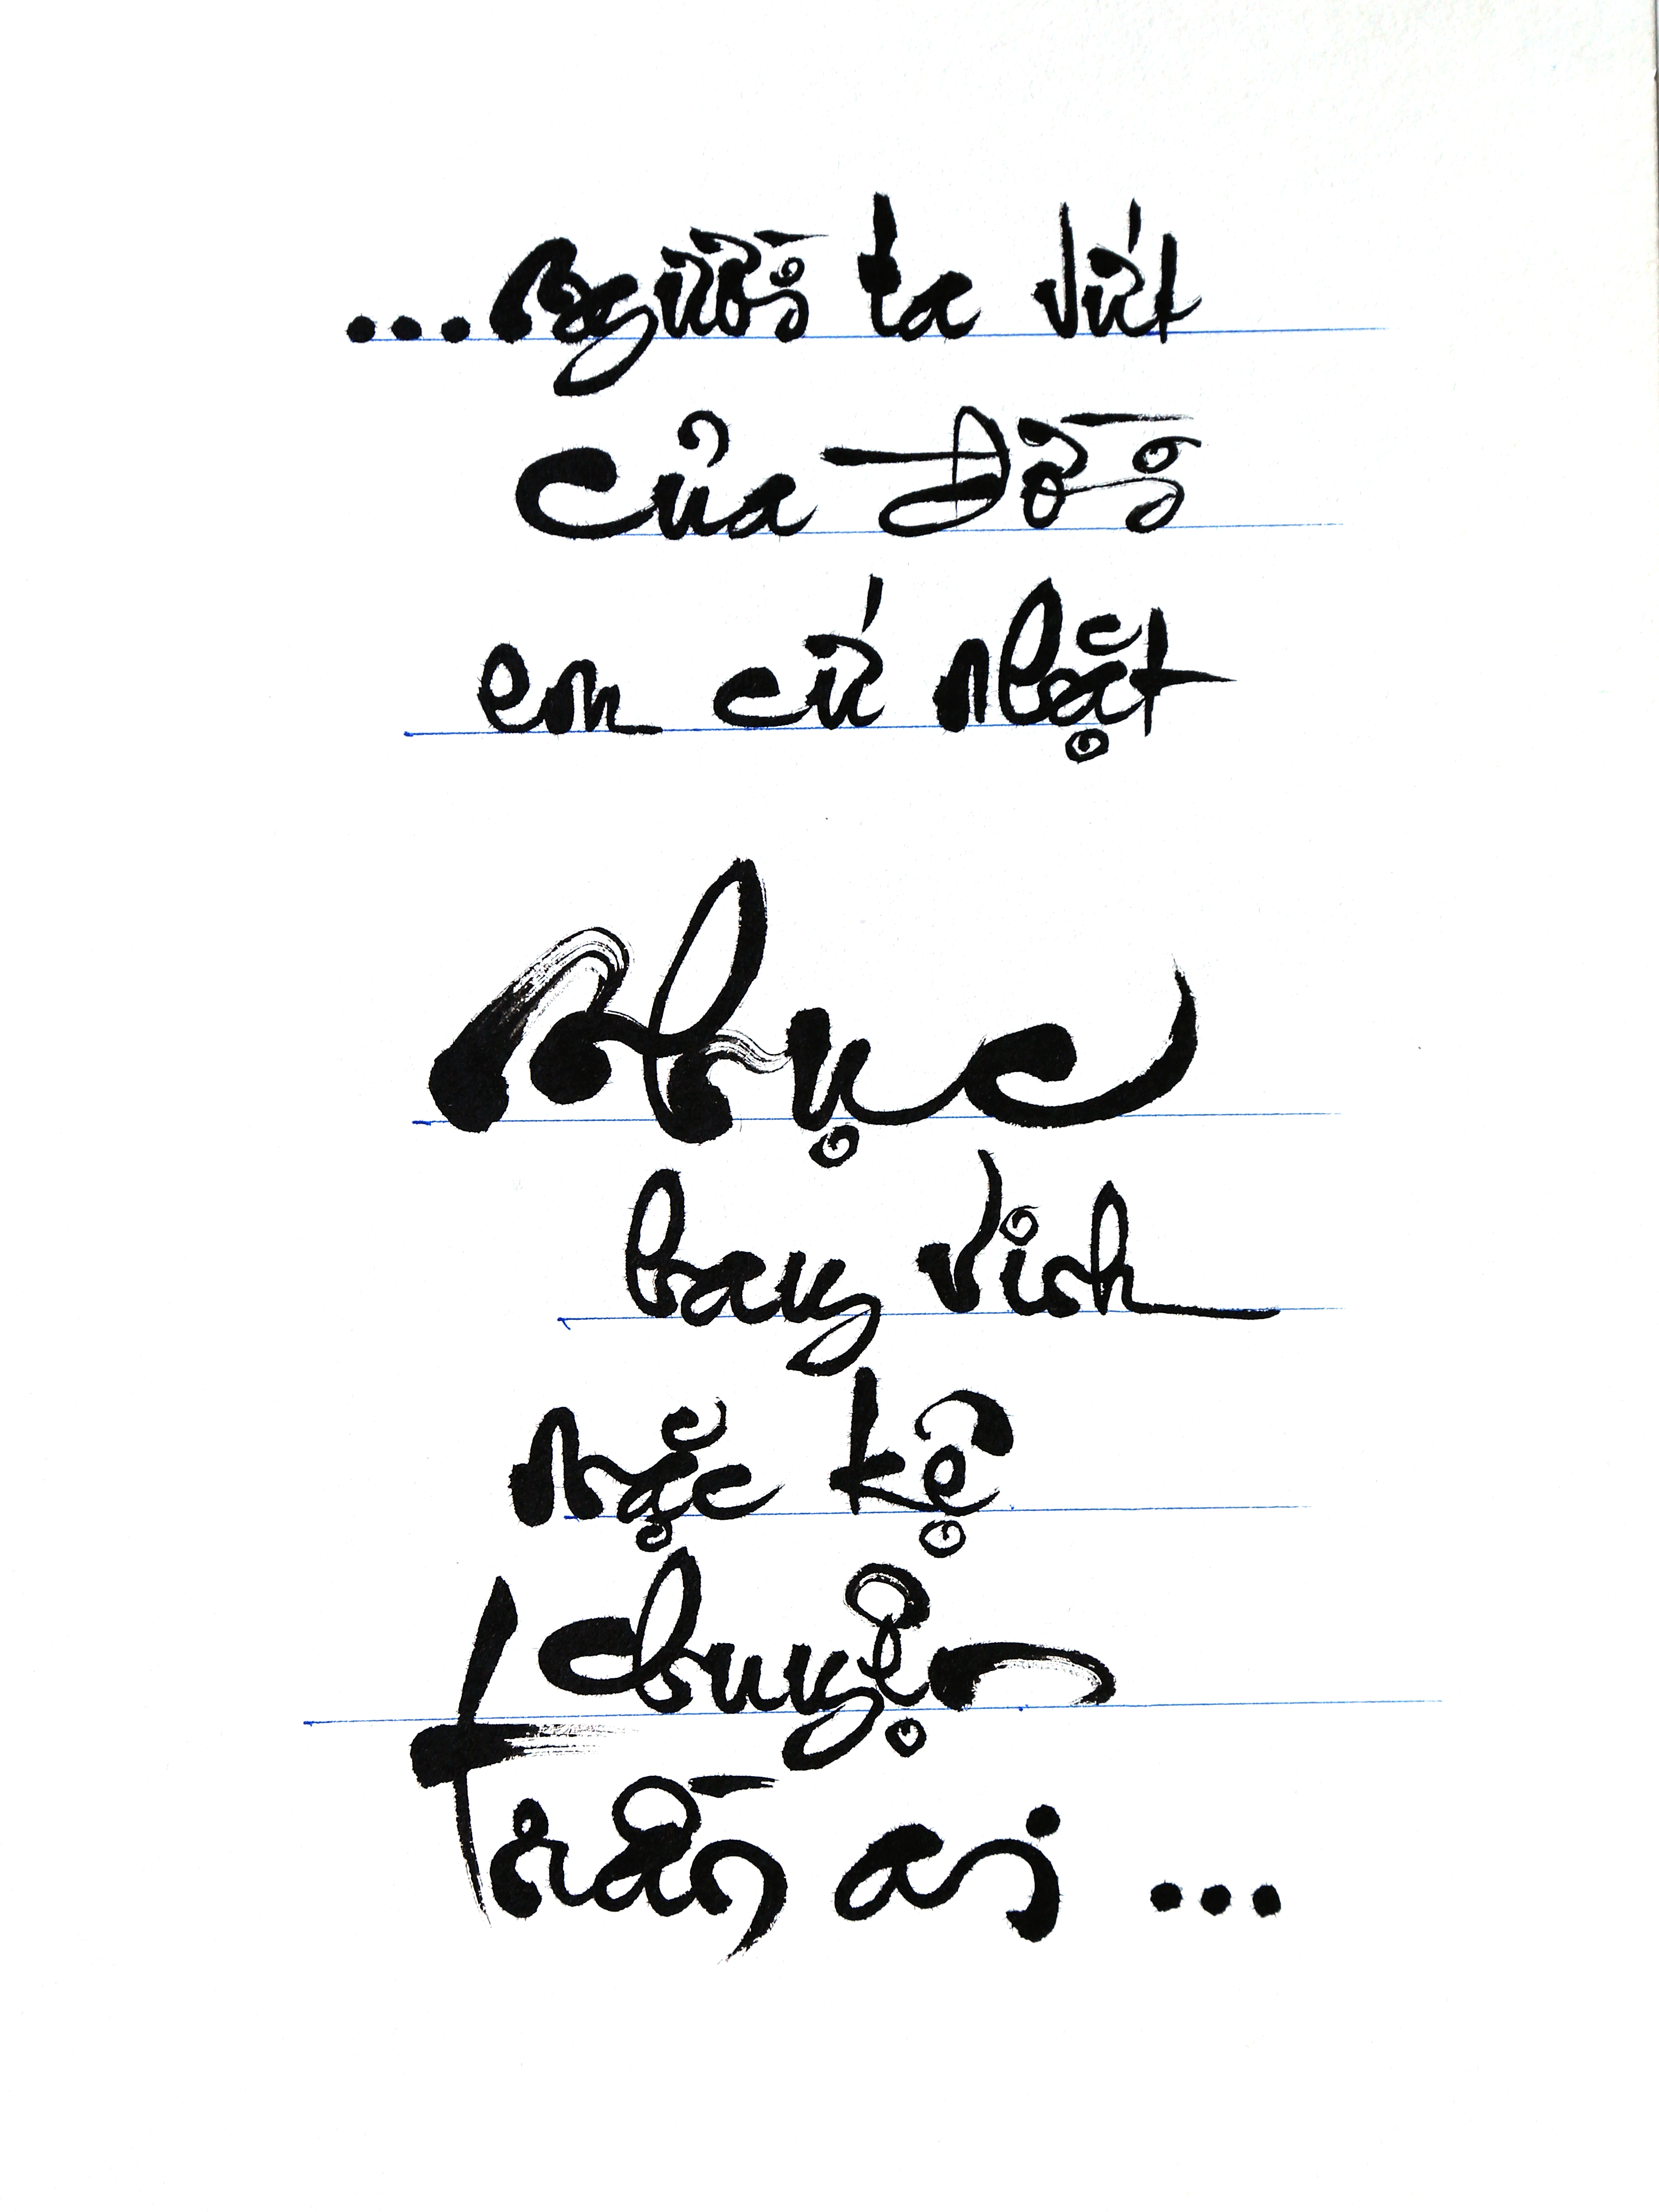 ...Người ta vứt
của đời
em cứ nhặt
Nhục
hay vinh
mặc kệ
chuyện
trần ai ...